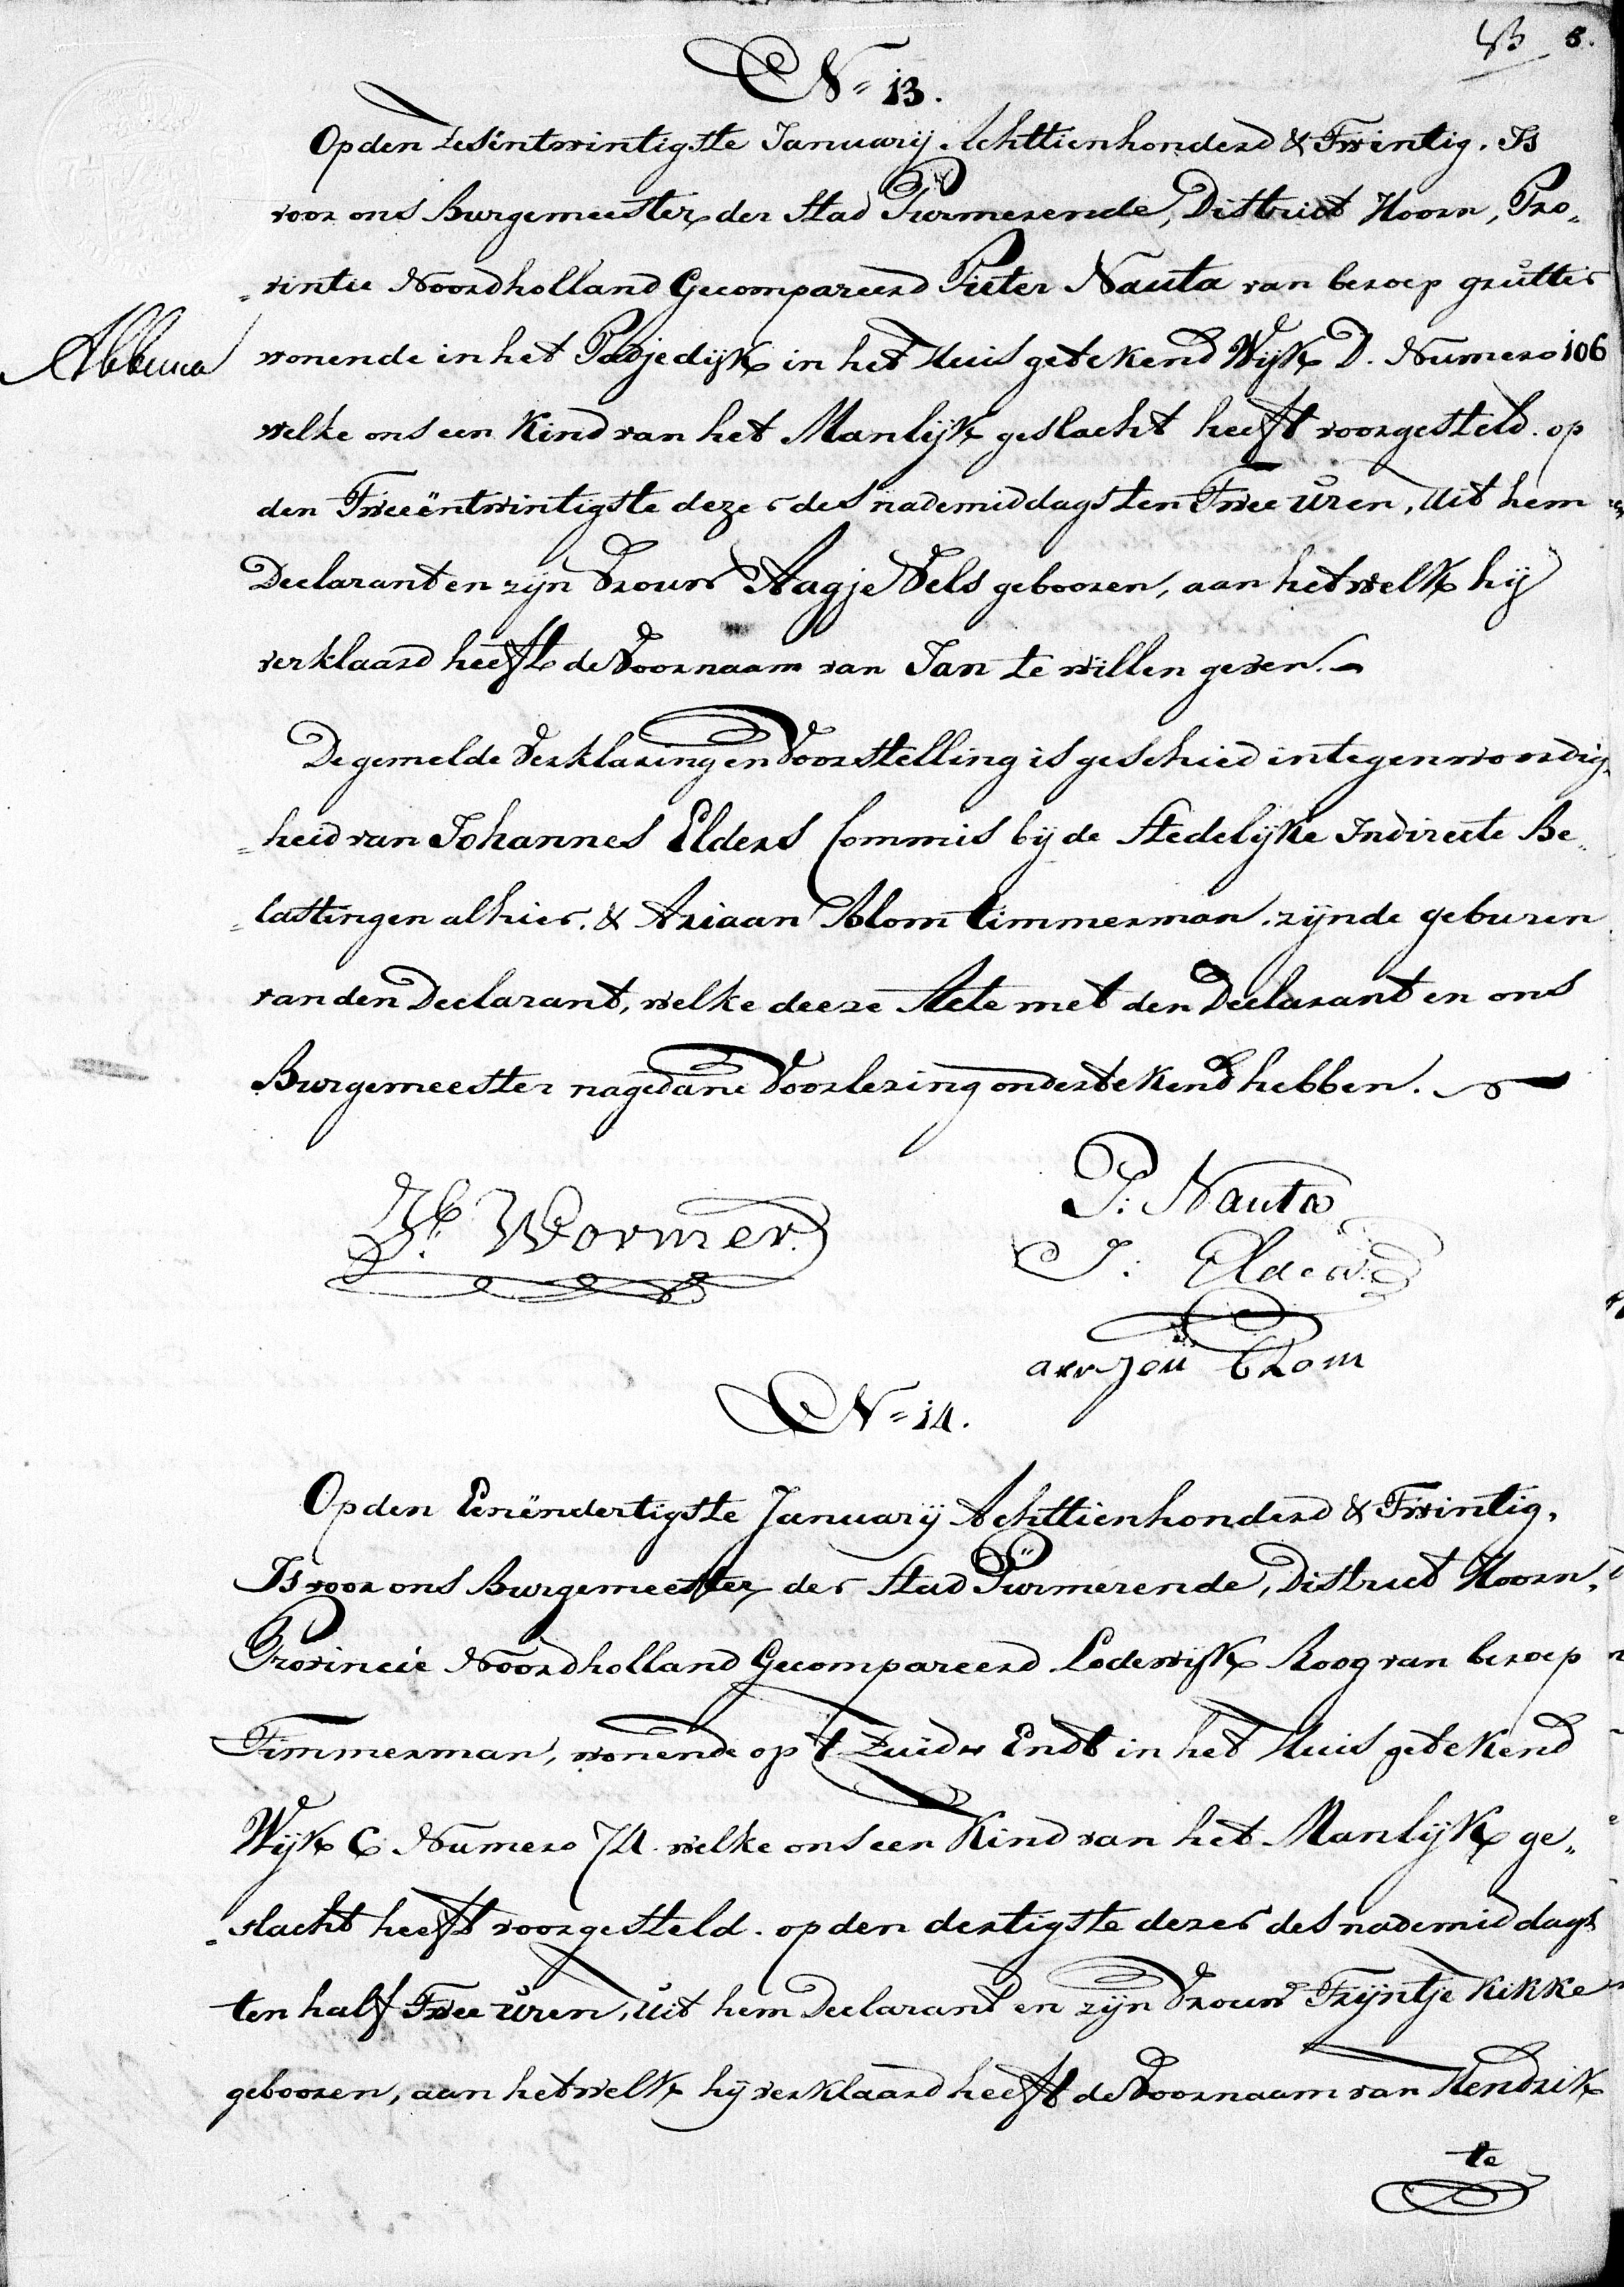 6.
N= 13.
Op den Zesëntwintigste Januarij Achttienhonderd & Twintig. Is
voor ons Burgemeester der Stad Purmerende, District Hoorn, Pro„
„vintie Noordholland Gecompareerd Pieter Nauta van beroep grutter
wonende in het Padjedijk in het Huis getekend Wijk D. Numero 106
welke ons een Kind van het Manlijk geslacht heeft voorgesteld. op
den Tweeëntwintigste dezer des nademiddags ten Twee uren, Uit hem
Declarant en zijn Vrouw Aagje Vels geboren, aan hetwelk hij
verklaard heeft de Voornaam van Jan te willen geven.
De gemelde Verklaring en Voorstelling is geschied in tegenwoordig„
„heid van Johannes Elders Commis bij de Stedelijke Indirecte Be„
„lastingen alhier. & Ariaan Blom timmerman. zijnde geburen
van den Declarant, welke deeze Acte met den Declarant en ons
Burgemeester na gedane Voorlezing ondertekend hebben.
P: Nauta
Wormer.
J: Elders
arejen Blom
N= 14.
Op den Eenëndertigste Januarij Achttienhonderd & Twintig.
Is voor ons Burgemeester der Stad Purmerende, District Hoorn,
Provincie Noordholland Gecompareerd Lodewijk Roog van beroep
Timmerman, wonende op 't Zuider Endt in het Huis getekend
Wijk C Numero 74. welke ons een Kind van het Manlijk ge„
„slacht heeft voorgesteld. op den dertigste dezer des nademiddags
ten half Twee uren, Uit hem Declarant en zijn Vrouw Trijntje Kikke
geboren, aan hetwelk hij verklaard heeft de Voornaam van Hendrik
te